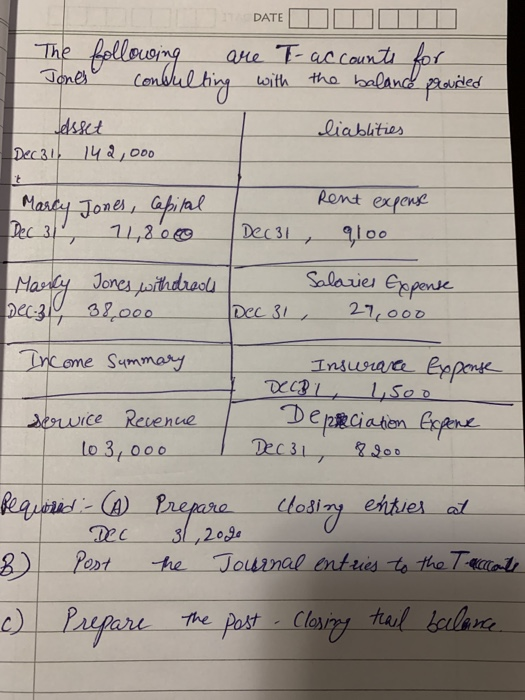 DATE
The following are T-accounts for
Jones consulting with the balance provided
Asset
Dec 31, 142,000
liablities
Marcy Jones, Capital
Dec 31, 71,800
Rent expense
Dec 31, 9100
Marcy Jones, withdrawls
Dec-31, 38,000
Salaries Expense
Dec 31, 27,000
Income Summary
Insurance Expense
Dec 31, 1,500
Service Revenue
103,000
Depreciation Expense
Dec 31, 8200
Required:- (A) Prepare closing entries at
Dec 31, 2020
B) Post the Journal entries to the T-accounts
C) Prepare the post-closing trail balance.